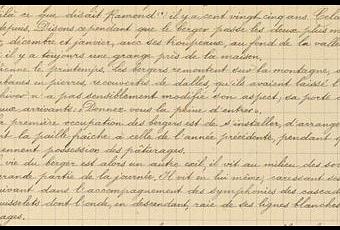 ilà ce que disait Ramond il y a cent vingt cinq ans. Cela
depuis. Disons cependant que le berger passe les deux plus m
, décembre et janvier, avec ses troupeaux, au fond de la vallé
il y a toujours une grange près de la maison.
ienne le printemps, les bergers remontent sur la montagne, d
abanes en pierres, recouvertes de dalles, qu'ils avaient laissé
hiver n'a pas sensiblement modifié son aspect; sa porte
ue arrivante: "Donnez vous la peine d'entrer".
a première occupation des bergers est de s'installer, d'arrange
nt la paille fraîche à celle de l'année précédente, pendant q
ennent possession des pâturages.
vie du berger est alors un autre exil, il vit au milieu des so
grande partie de la journée. Il vit en lui même, caressant se
ivant dans l'accompagnement des symphonies des cascade
uisselets dont l'onde, en descendant, raie de ses lignes blanches
ages.